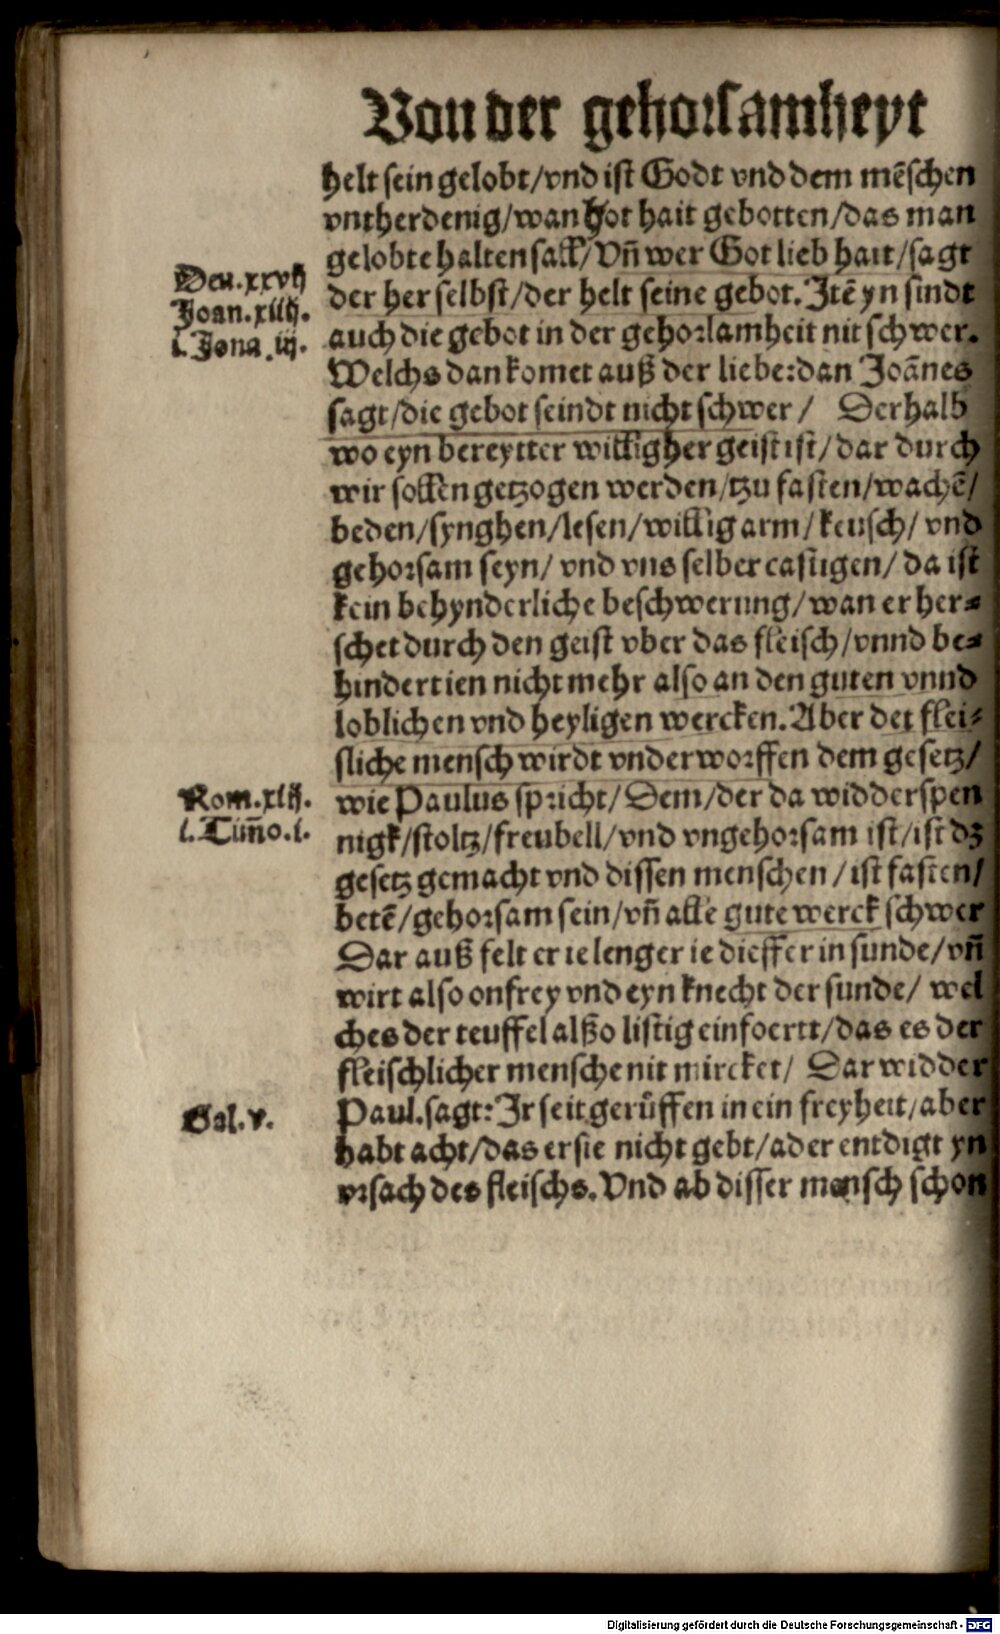 Von der gehorsamheyt
helt sein gelobt/vnd ist Godt vnd dem mẽschen
vntherdenig/wan hot hait gebotten/das man
gelobte halten sall/Vñ wer Got lieb hait/sagt
Deu.xxvij
der her selbst/der helt seine gebot. Itẽ yn sindt
Joan.xiiij.
auch die gebot in der gehorsamheit nit schwer.
i.Jona.iij.
Welchs dan komet auß der liebe:dan Joãnes
sagt/die gebot seindt nicht schwer/ Derhalb
wo eyn bereytter willigher geist ist/dar durch
wir sollen getzogen werden/tzu fasten/wachẽ/
beden/synghen/lesen/willig arm/keusch/vnd
gehorsam seyn/ vnd vns selber castigen/ da ist
kein behynderliche beschwerung/wan er her⸗
schet durch den geist vber das fleisch/vnnd be⸗
hindert ien nicht mehr also an den guten vnnd
loblichen vnd heyligen wercken. Aber det flei⸗
sliche mensch wirdt vnderworffen dem gesetz/
Rom.xiij.
wie Paulus spricht/Dem/der da widderspen
i.Timõ.i.
nigk/stoltz/freubell/vnd vngehorsam ist/ist dz
gesetz gemacht vnd dissen menschen/ist fasten/
betẽ/gehorsam sein/vñ alle gute werck schwer
Dar auß felt er ie lenger ie dieffer in sunde/vñ
wirt also onfrey vnd eyn knecht der sunde/ wel
ches der teuffel alßo listig einfoertt/das es der
fleischlicher mensche nit mircket/ Dar widder
Gal.v.
Paul.sagt: Ir seit gerůffen in ein freyheit/aber
habt acht/das er sie nicht gebt/ader entdigt yn
vrsach des fleischs. Vnd ab disser mensch schon
Digitalisierung gefördert durch die Deutsche Forschungsgemeinschaft - DFG